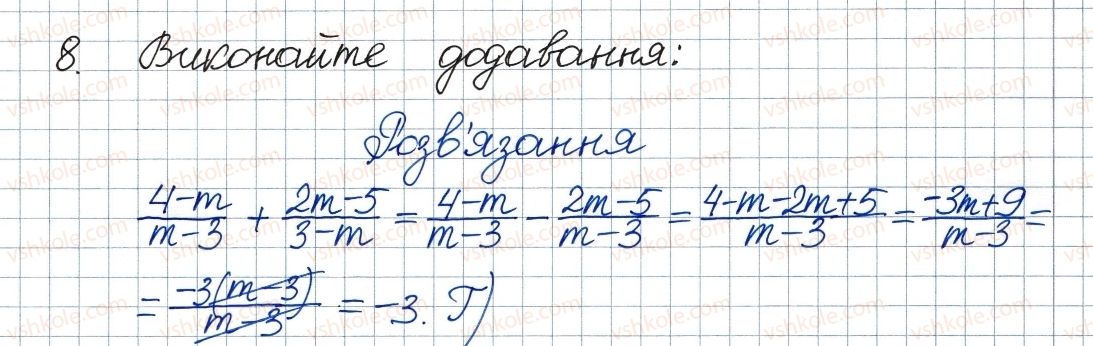 8. Виконайте додавання:
Розв'язання
(4-m)/(m-3) + (2m-5)/(3-m) = (4-m)/(m-3) - (2m-5)/(m-3) = (4-m-2m+5)/(m-3) = (-3m+9)/(m-3) =
= (-3(m-3))/(m-3) = -3. Г)